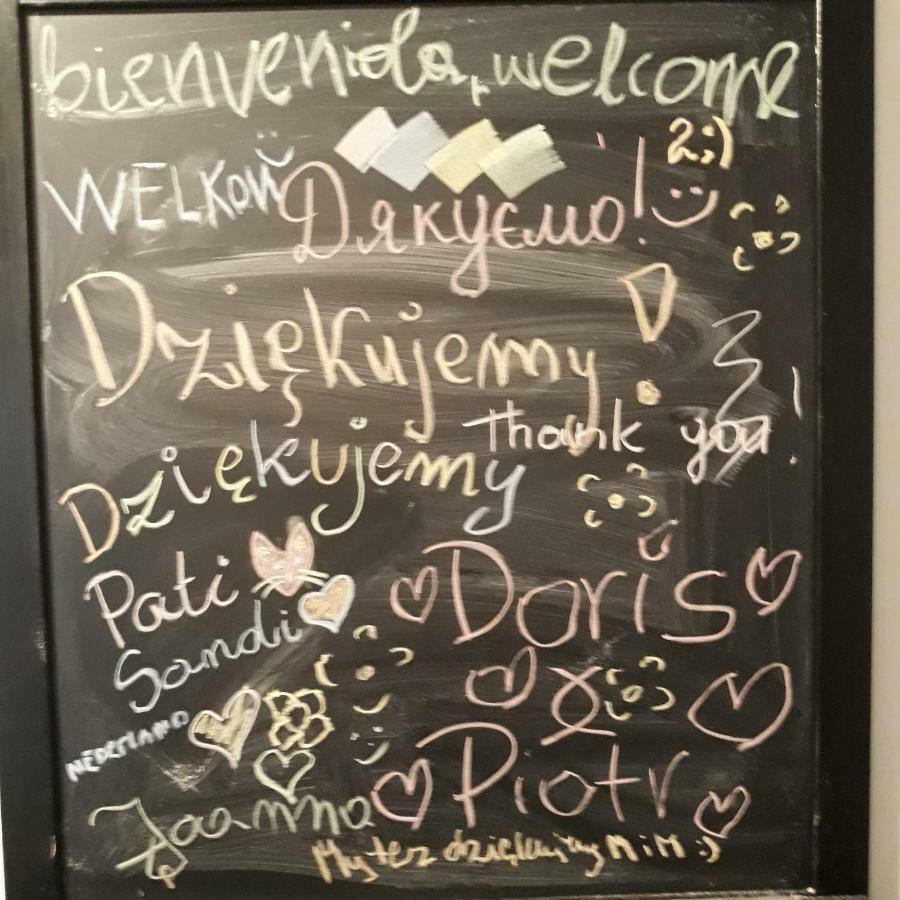 bienvenido, welcome
WELKOM
Дякуємо!
2;)
Dziękujemy!
Thank you!
Dziękujemy
Pati
Doris
Sandi
&
NEDERLAND
Piotr
Joanna
My też dziękujemy M i M :)